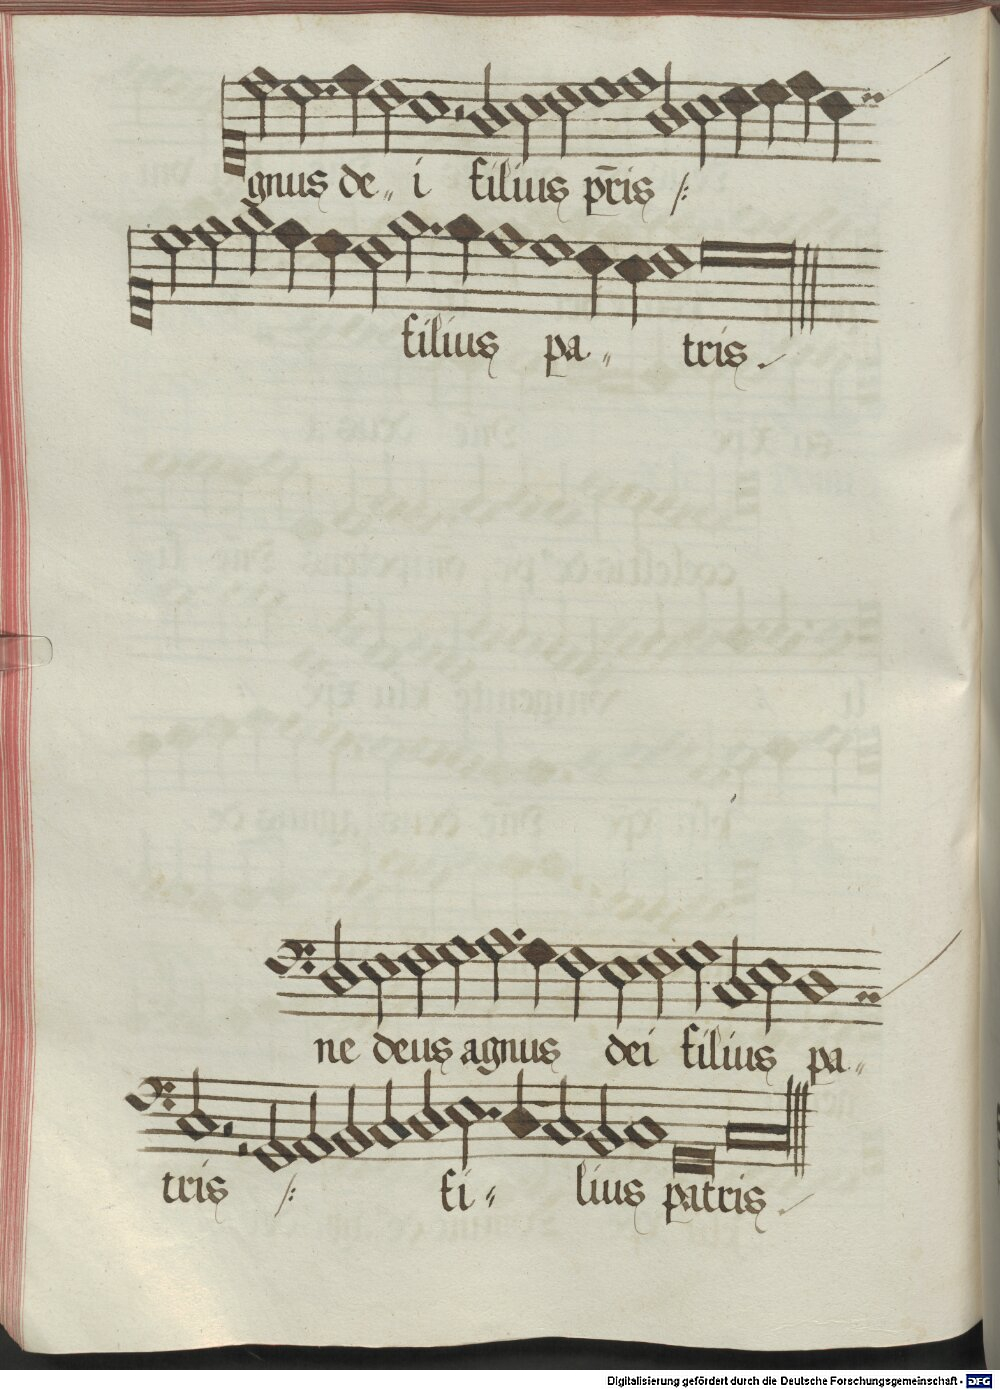 gnus de„ i filius p̄ris ⁒
filius pa„ tris.
ne deus agnus dei filius pa„
tris ⁒ fi„ lius patris.
Digitalisierung gefördert durch die Deutsche Forschungsgemeinschaft - DFG